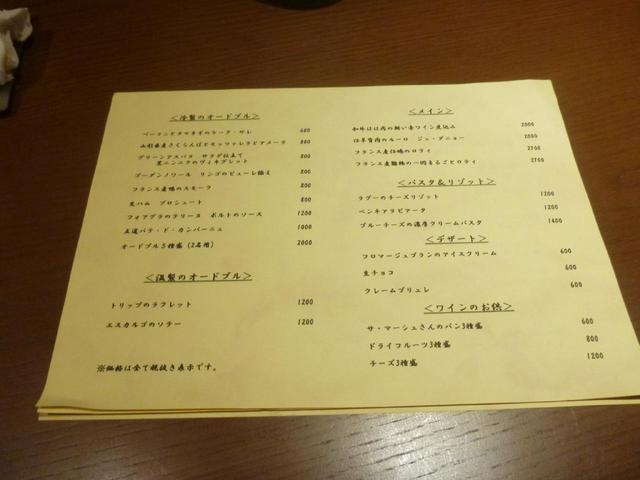 <冷製のオードブル>
ベーコンとタマネギのケーク・サレ 600
山形県産さくらんぼとモッツァレラとアメーラ 800
グリーンアスパラ サラダ仕立て 800
黒ニンニクのヴィネグレット
ブーダンノワール リンゴのピューレ添え 800
フランス産鴨のスモーク 800
生ハム プロシュート 800
フォアグラのテリーヌ ポルトのソース 1200
王道パテ・ド・カンパーニュ 1000
オードブル5種盛(2名用) 2000
<温製のオードブル>
トリップのラグレット 1200
エスカルゴのソテー 1200
※価格は全て税抜き表示です。
<メイン>
和牛ほほ肉の 赤ワイン煮込み 2000
仔羊背肉のルーロ ジュ・ダニョー 2000
フランス産仔鳩のロティ 2700
フランス産雛鶏の一羽まるごとロティ 2700
<パスタ&リゾット>
ラグーのチーズリゾット 1200
ペンネアラビアータ 1200
ブルーチーズの濃厚クリームパスタ 1400
<デザート>
フロマージュブランのアイスクリーム 600
生チョコ 600
クレームブリュレ 600
<ワインのお供>
サ・マーシュさんのパン3種盛 600
ドライフルーツ3種盛 800
チーズ3種盛 1200